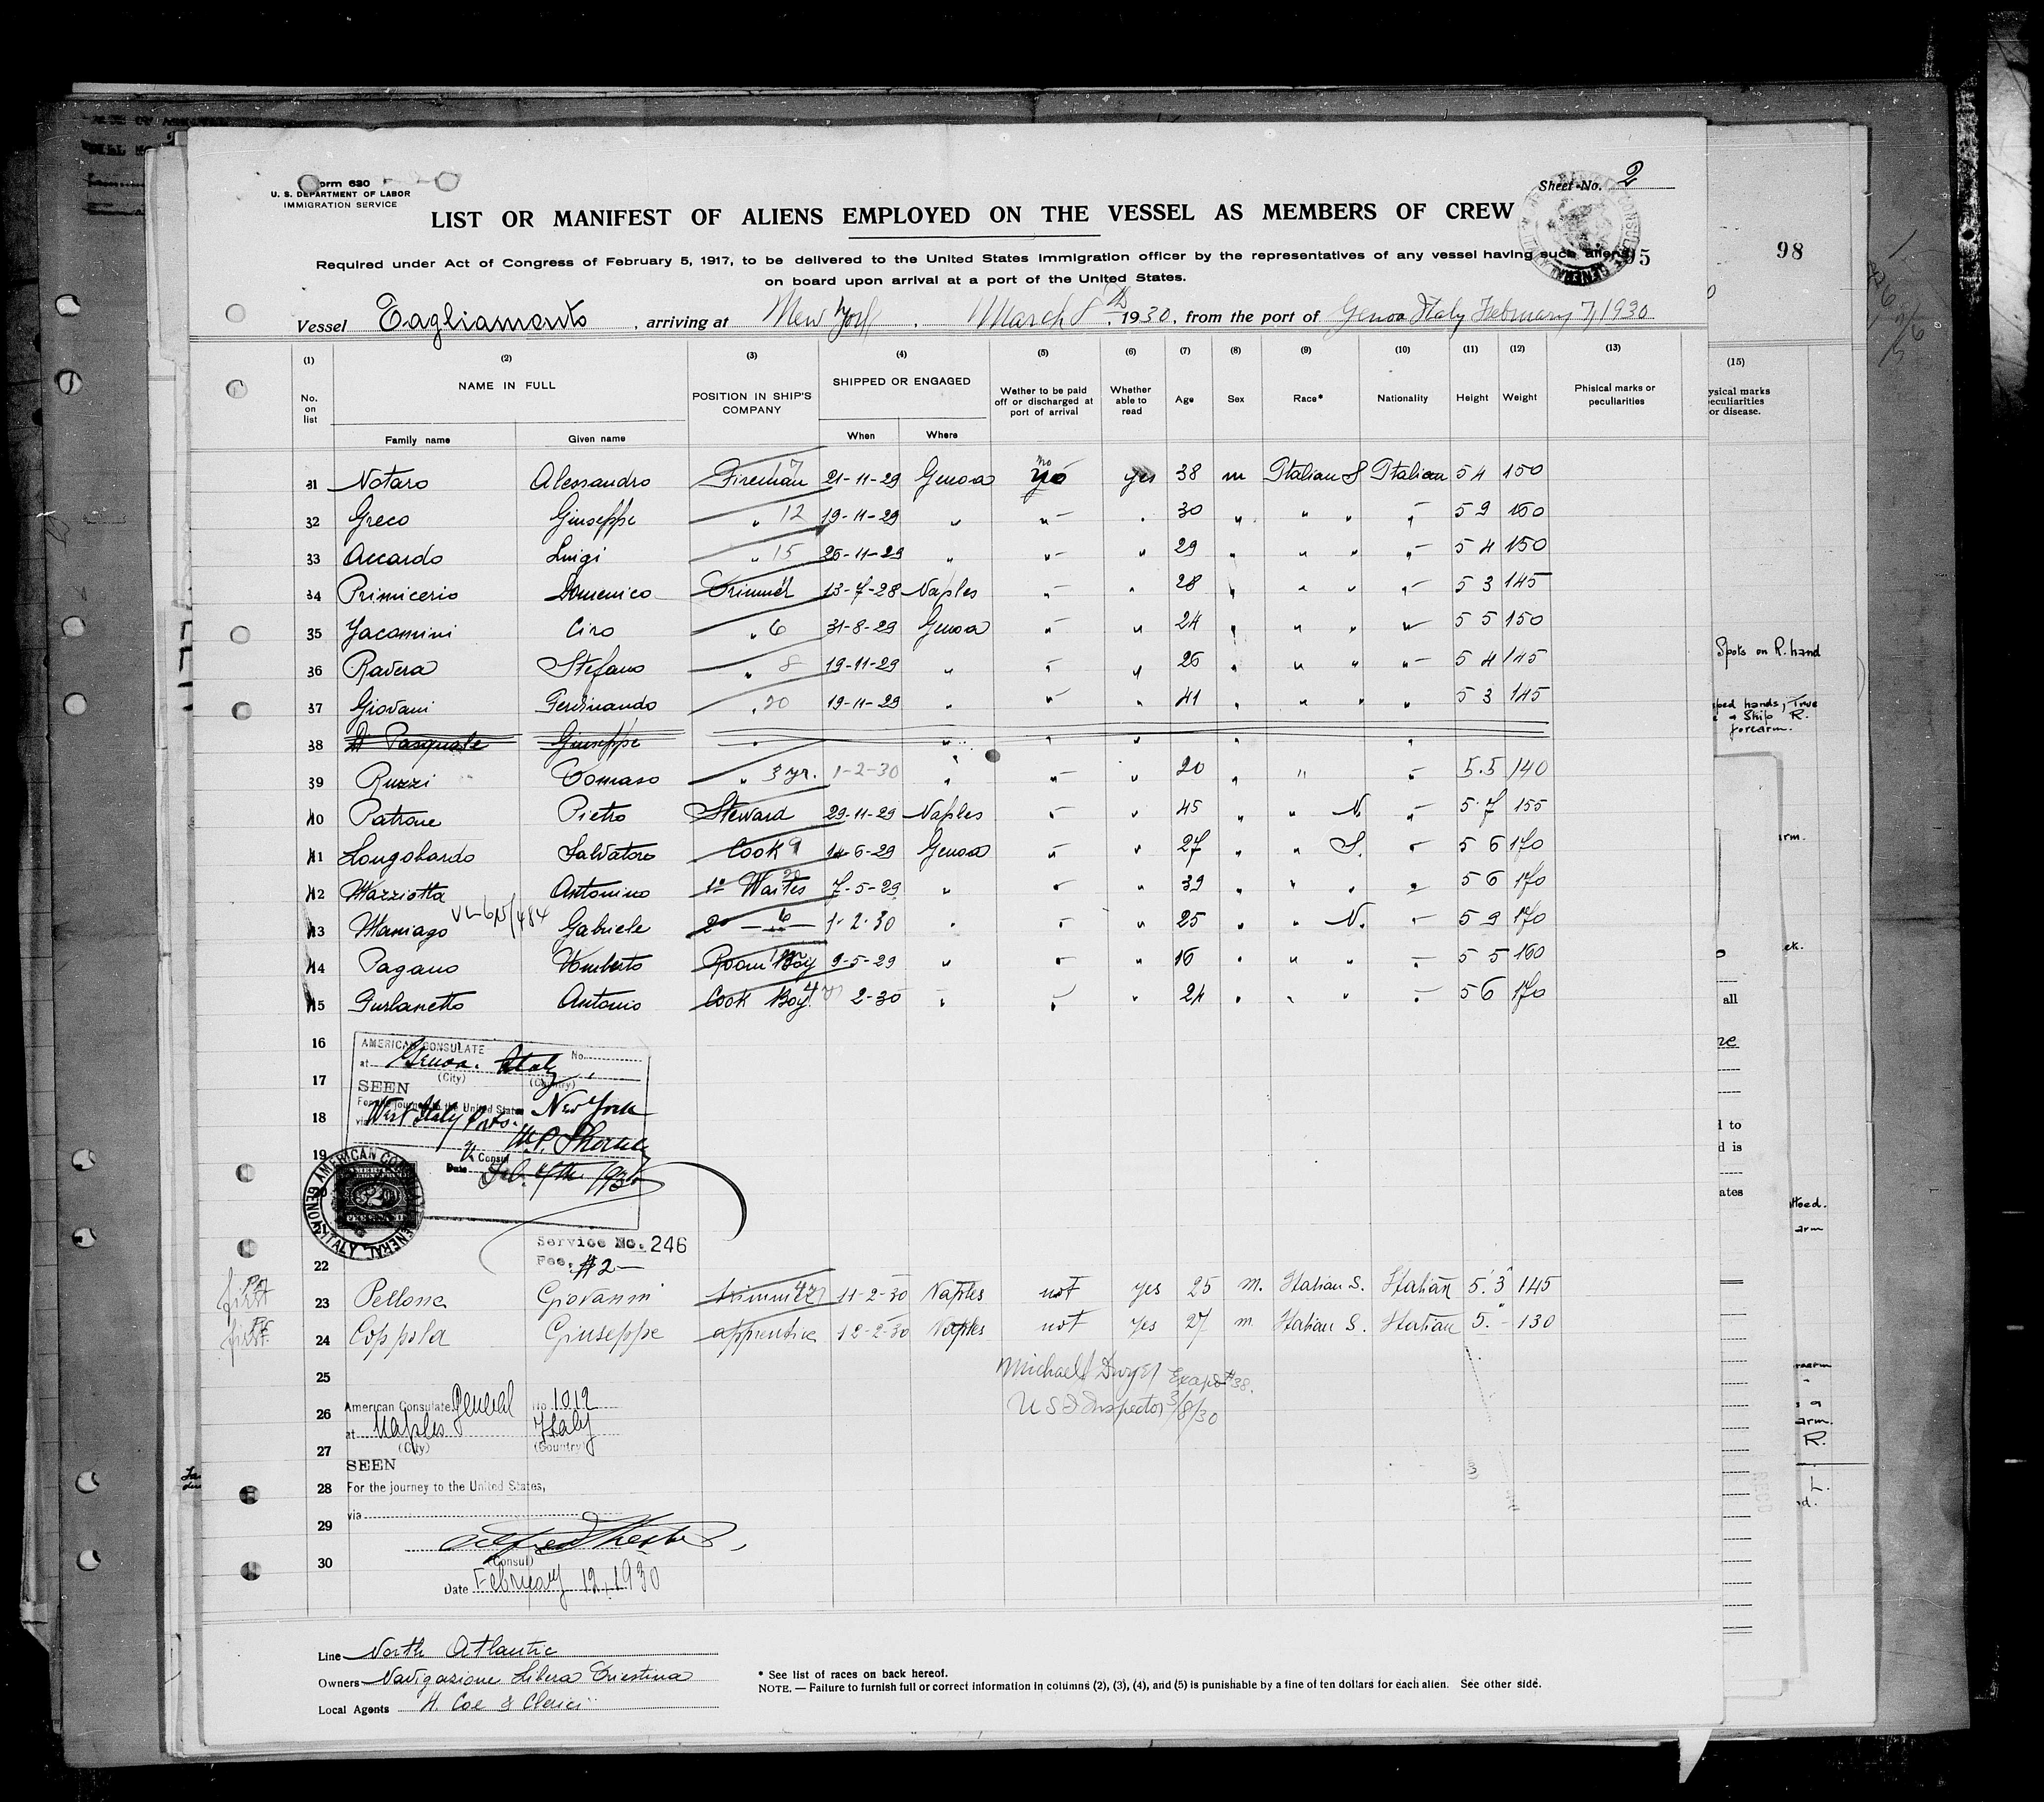 Form 630
U. S. DEPARTMENT OF LABOR
IMMIGRATION SERVICE
Sheet No. 2
LIST OR MANIFEST OF ALIENS EMPLOYED ON THE VESSEL AS MEMBERS OF CREW
98
Required under Act of Congress of February 5, 1917, to be delivered to the United States Immigration officer by the representatives of any vessel having such aliens
on board upon arrival at a port of the United States.
Vessel Tagliamento, arriving at New York, March 8th, 1930, from the port of Genoa Italy February 7, 1930
(1) (2) (3) (4) (5) (6) (7) (8) (9) (10) (11) (12) (13) (15)
No. on list NAME IN FULL POSITION IN SHIP'S COMPANY SHIPPED OR ENGAGED Wether to be paid off or discharged at port of arrival Whether able to read Age Sex Race* Nationality Height Weight Phisical marks or peculiarities
Family name Given name When Where
31 Notaro Alessandro Fireman 7 21-11-29 Genova no yes 38 m Italian S Italian 5 4 150
32 Greco Giuseppe " 12 19-11-29 " " " 30 " " " " 5 9 160
33 Accardo Luigi " 15 26-11-29 " " " 29 " " " " 5 4 150
34 Primicerio Domenico Trimmer 13-7-28 Naples " " 28 " " " " 5 3 145
35 Jacomini Ciro " 6 31-8-29 Genova " " 24 " " " " 5 5 150
36 Ravera Stefano " 8 19-11-29 " " " 26 " " " " 5 4 145
37 Giovani Ferdinando " 20 19-11-29 " " " 41 " " " " 5 3 145
38 Di Pasquale Giuseppe " " " " " "
39 Ruzzi Tomaso " 3 yr. 1-2-30 " " " 20 " " " 5.5 140
40 Patrone Pietro Steward 29-11-29 Naples " " 45 " " N. " 5 7 155
41 Longobardo Salvatore Cook 9 14-6-29 Genova " " 27 " " S. " 5 6 170
42 Mazziotta Antonino 1° Waites 20 7-5-29 " " " 39 " " " " 5 6 170
43 Maniago Gabriele 2° " 6 1-2-30 " " " 25 " " N. " 5 9 170
44 Pagano Umberto Room Boy 9-5-29 " " " 16 " " " " 5 5 160
45 Furlanetto Antonio Cook Boy 4 2-30 " " " 24 " " " " 5 6 170
16
17
18
19
AMERICAN CONSULATE No.
at Genoa. Italy
(City) (Country)
SEEN
For the journey to the United States New York
via West Italy Ports.
V. Consul
Date Feb. 7th 1930
AMERICAN CONSULATE GENERAL GENOA, ITALY
Service No. 246
Fee. $2—
22
23 Pellone Giovanni trimmer 11-2-30 Naples not yes 25 m. Italian S. Italian 5.3 145
24 Coppola Giuseppe apprentice 12-2-30 Naples not yes 27 m Italian S. Italian 5.- 130
first
first
25
Michael Dwyer Except #38.
U S I Inspector 3/8/30
26
27
American Consulate General No. 1019
at Naples Italy
(City) (Country)
SEEN
28 For the journey to the United States,
via
29
(Consul)
30
Date February 12, 1930
Line North Atlantic
Owners Navigazione Libera Triestina
Local Agents H. Coe & Clerici
* See list of races on back hereof.
NOTE. — Failure to furnish full or correct information in columns (2), (3), (4), and (5) is punishable by a fine of ten dollars for each alien. See other side.
Spots on R. hand
hands, True
Ship R.
forearm.